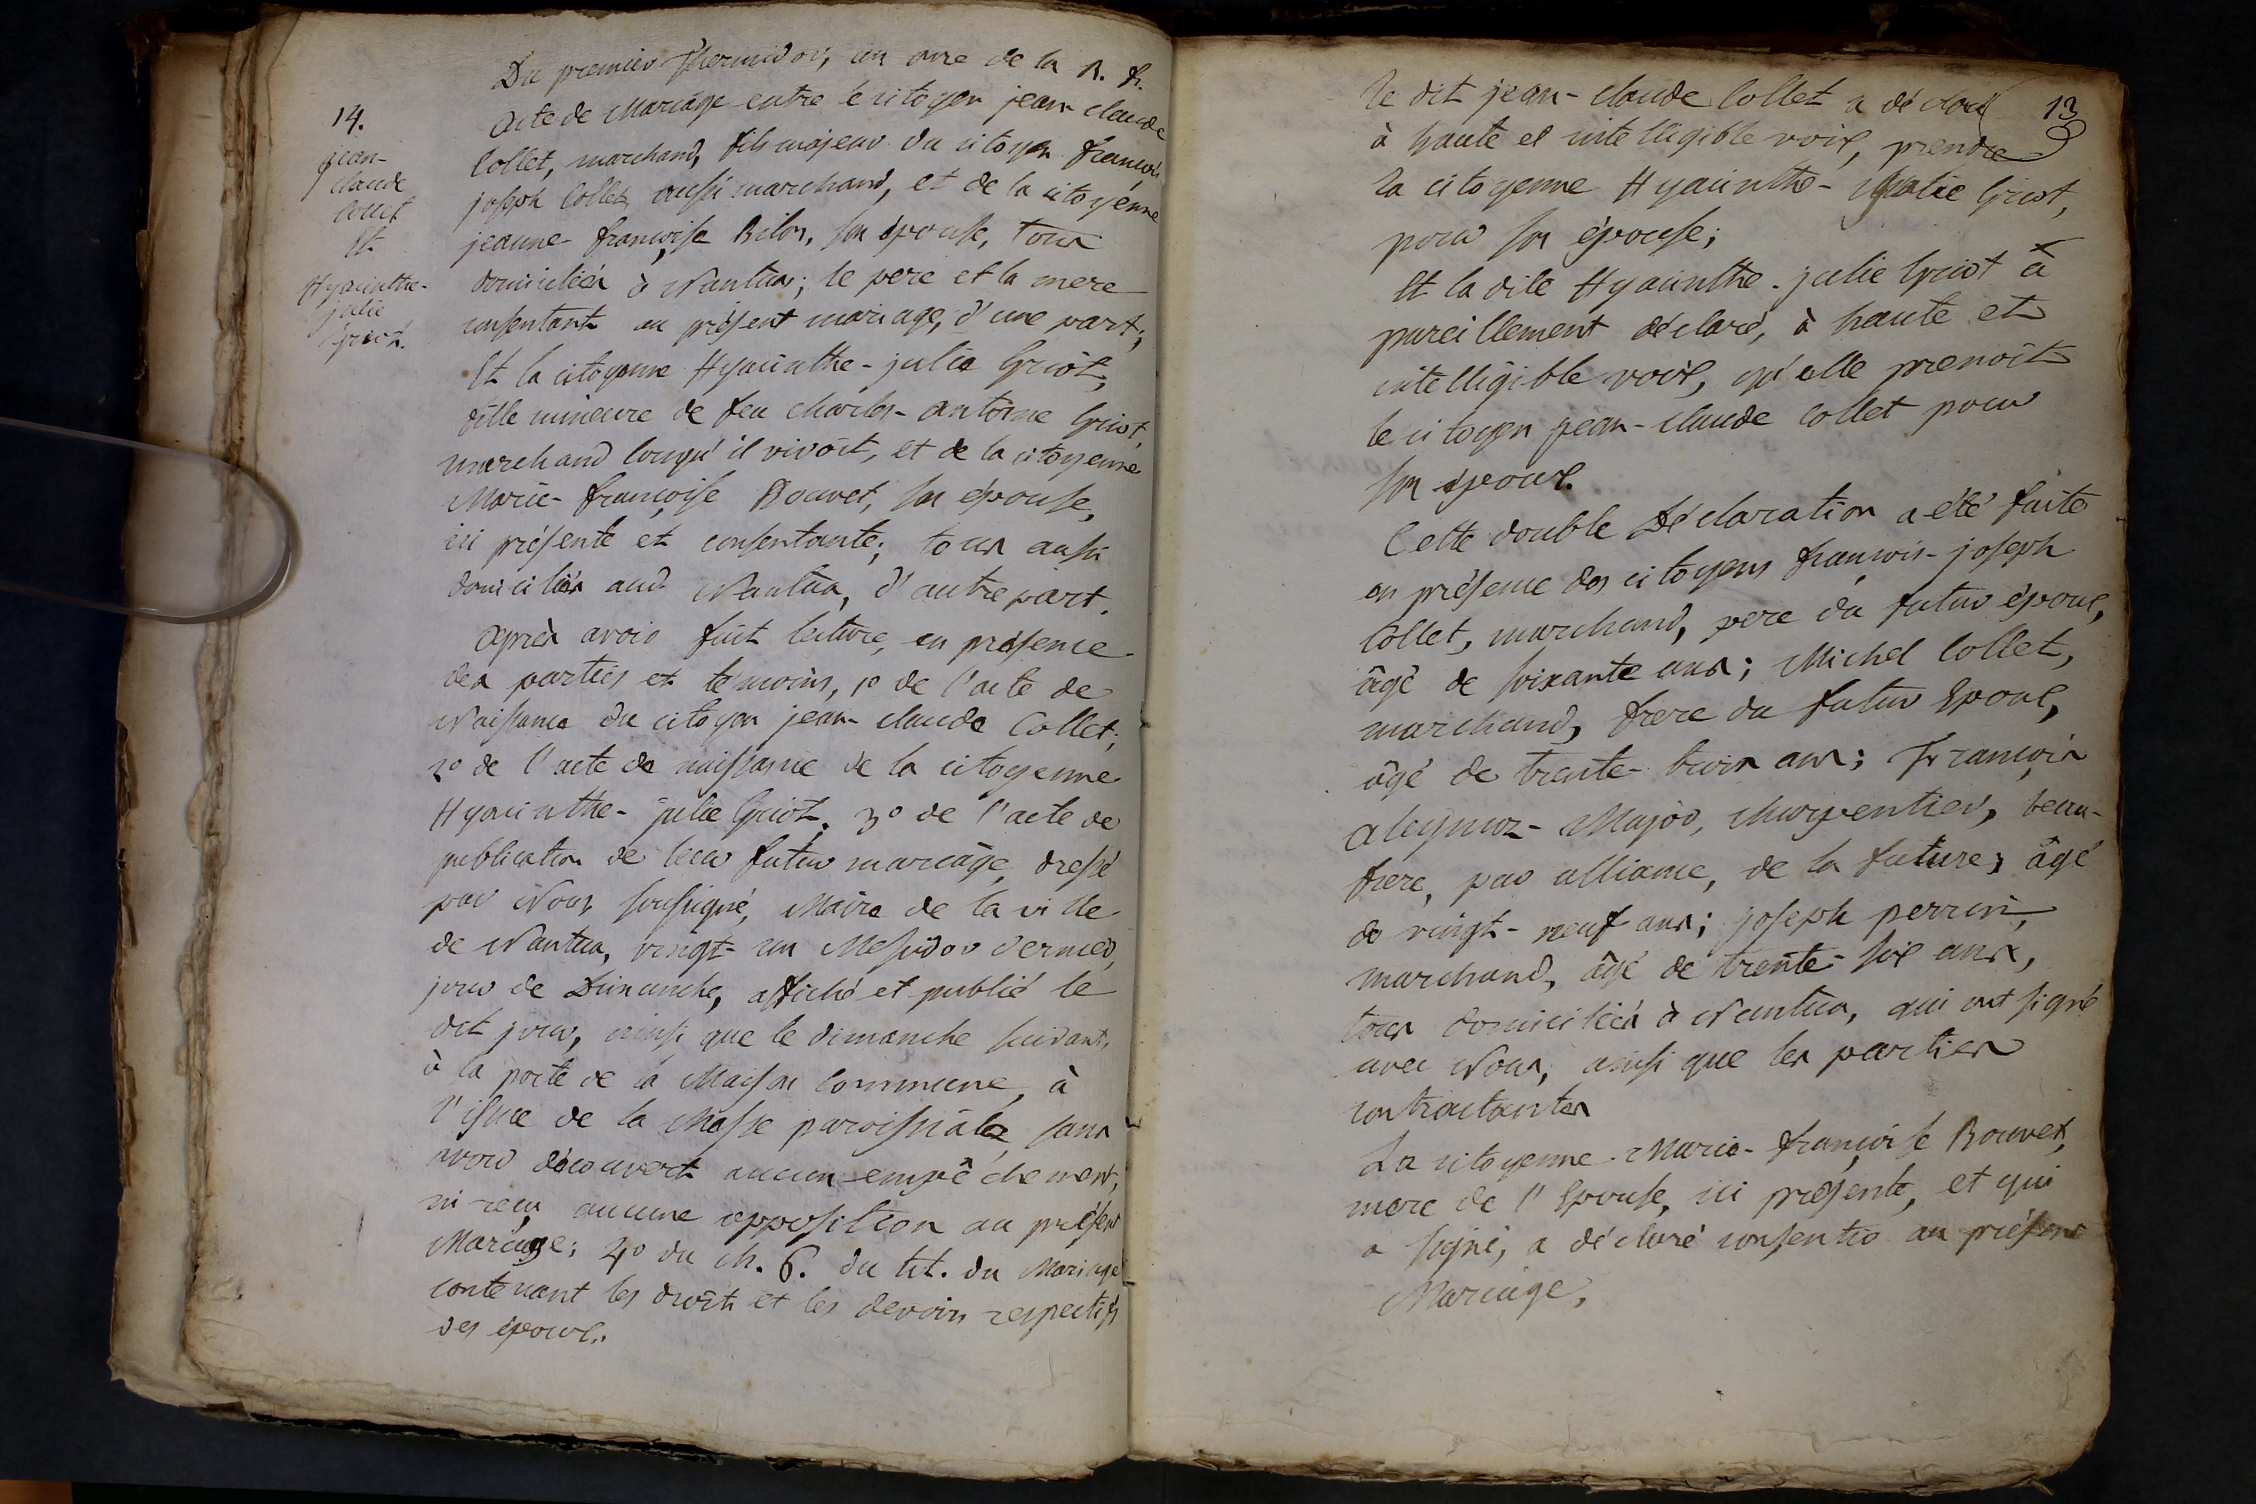 Du premier Thermidor, an onze de la R. fr.
14.
jean-
claude
Collet
Et
Hyacinthe-
julie
Griot.
Acte de Mariage entre le citoyen jean claude
Collet, marchand, fils majeur du citoyen francois
joseph Collet, aussi marchand, et de la citoyenne
jeanne-françoise Bilon, son épouse, tous
domiciliés à Nantua; le pere et la mere
consentants au présent mariage, d'une part;
Et la citoyenne Hyacinthe-julie Griot,
fille mineure de feu charles-antoine Griot,
marchand lorsqu'il vivoit, et de la citoyenne
Marie-françoise Bouvet, son épouse,
ici présente et consentante; tous aussi
domiciliés aud Nantua, d'autre part.
après avoir fait lecture, en présence
des parties et témoins, 1º de l'acte de
Naissance du citoyen jean-claude Collet;
2º de l'acte de naissance de la citoyenne
Hyacinthe-julie Griot, 3º de l'acte de
publication de leur futur mariage, dressé
par Nous soussigné, Maire de la ville
de Nantua, vingt-un Messidor dernier,
jour de Dimanche, affiché et publié le
dit jour, ainsi que le dimanche suivant,
à la porte de la Maison commune, à
l'issue de la Messe paroissiale, sans
avoir découvert aucun empêchement,
ni reçu aucune opposition au présent
Mariage; 4º du ch. 6. du tit. du Mariage
contenant les droits et les devoirs respectifs
des époux.
13
Le dit jean-claude Collet a déclaré
à haute et intelligible voix, prendre
la citoyenne Hyacinthe-julie Griot,
pour son épouse;
Et la dite Hyacinthe-julie Griot a
pareillement déclaré, à haute et
intelligible voix, qu'elle prenoit
le citoyen jean-claude Collet pour
son époux.
Cette double Déclaration a été faite
en présence des citoyens francois-joseph
Collet, marchand, pere du futur époux,
âgé de soixante ans; Michel Collet,
marchand, frere du futur Epoux,
âgé de trente-trois ans; François
Major, charpentier, beau-
frere, par alliance, de la future, âgé
de vingt-neuf ans; joseph perrin,
marchand, âgé de trente-six ans,
tous domiciliés à Nantua, qui ont signé
avec Nous, ainsi que les parties
contractantes
La citoyenne Marie-françoise Bouvet,
mere de l'Epouse, ici présente, et qui
a signé, a déclaré consentir au présent
Mariage,